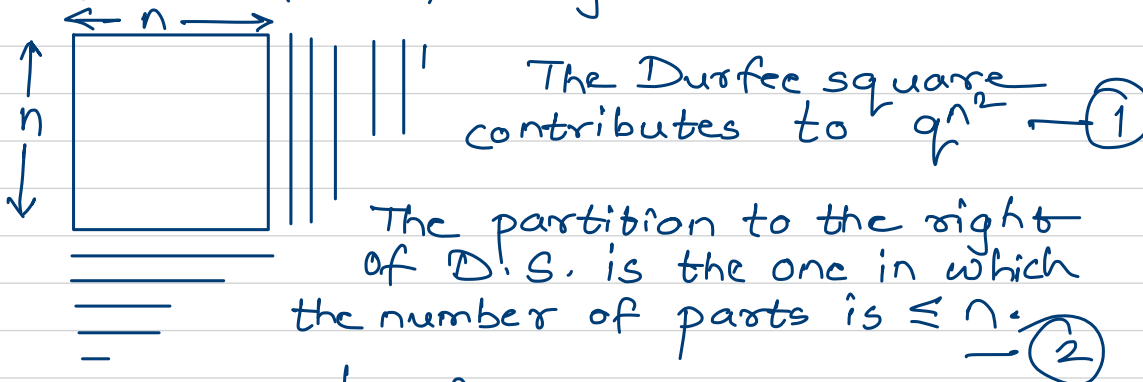 n
n
The Durfee square
contributes to q^n^2 — 1
The partition to the right
of D.S. is the one in which
the number of parts is ≤ n.
— 2